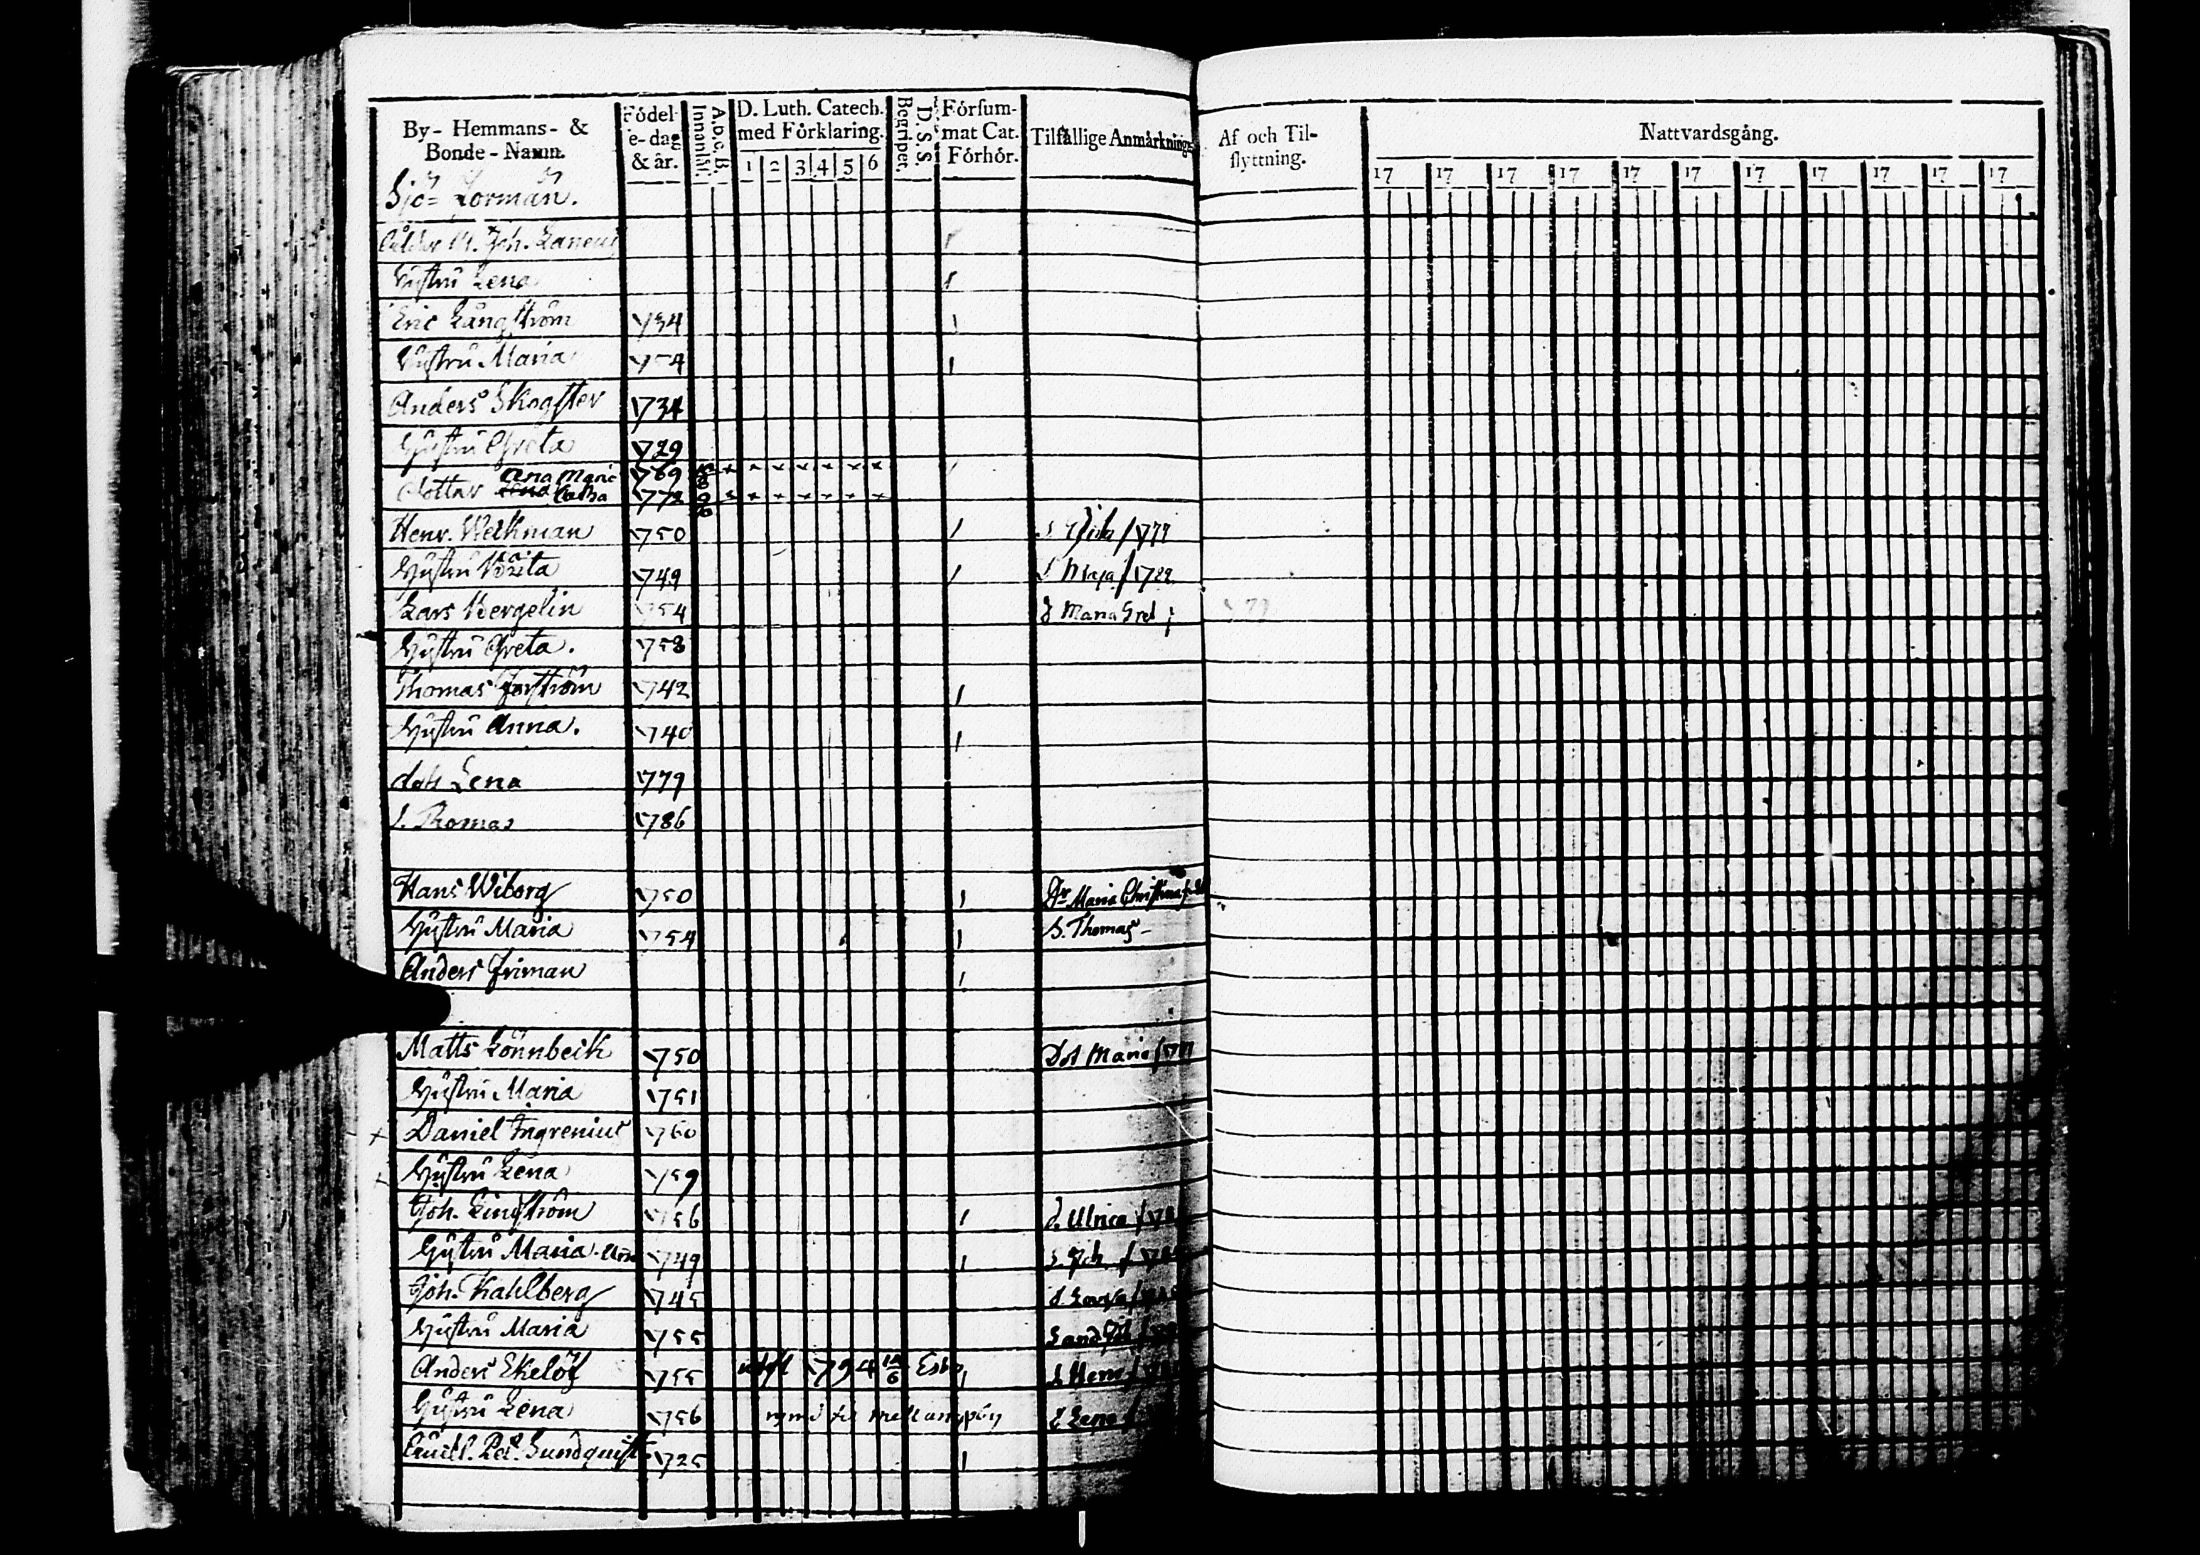 By- Hemmans- & Bonde-Namn.
Födel- e-dag & år.
A.b.c.B. Innanläsn.
D. Luth. Catech. med Förklaring.
1 2 3 4 5 6
D. S. S. Begriper.
Försum- mat Cat. Förhör.
Tilfällige Anmärkningar
Af och Til- flyttning.
Nattvardsgång.
17 17 17 17 17 17 17 17 17 17 17
Sjö-
M. Joh.
Hustru Lena
Eric Långström 1734
Hustru Maria 1754
Anders Skogster 1734
Hustru Greta 1729
Ana Maria 1769
dottar Catha 1772
Henr. Weckman 1750
Hustru 1749 1782
Lars Bergelin 1754 d Maria Gret
Hustru Greta. 1758
Thomas Forström 1742
Hustru Anna. 1740
dotr Lena 1779
s. Thomas 1786
Hans Wiborg 1750 Dr Maria Christina
Hustru Maria 1754 S. Thomas
Anders Friman
Matts Lönnbeck 1750 Dot Maria
Hustru Maria 1751
Daniel Ingrenius 1760
Hustru Lena 1759
Joh. 1756 d. Ulrica
Hustru Maria 1749 s. Joh
Joh. Kahlberg 1745 d. Lovisa
Hustru Maria 1755
Anders Ekelöf 1755 utflt 1794 Esbo s. Henr
Hustru Lena 1756 d Lena
Pet. Sundquist 1725